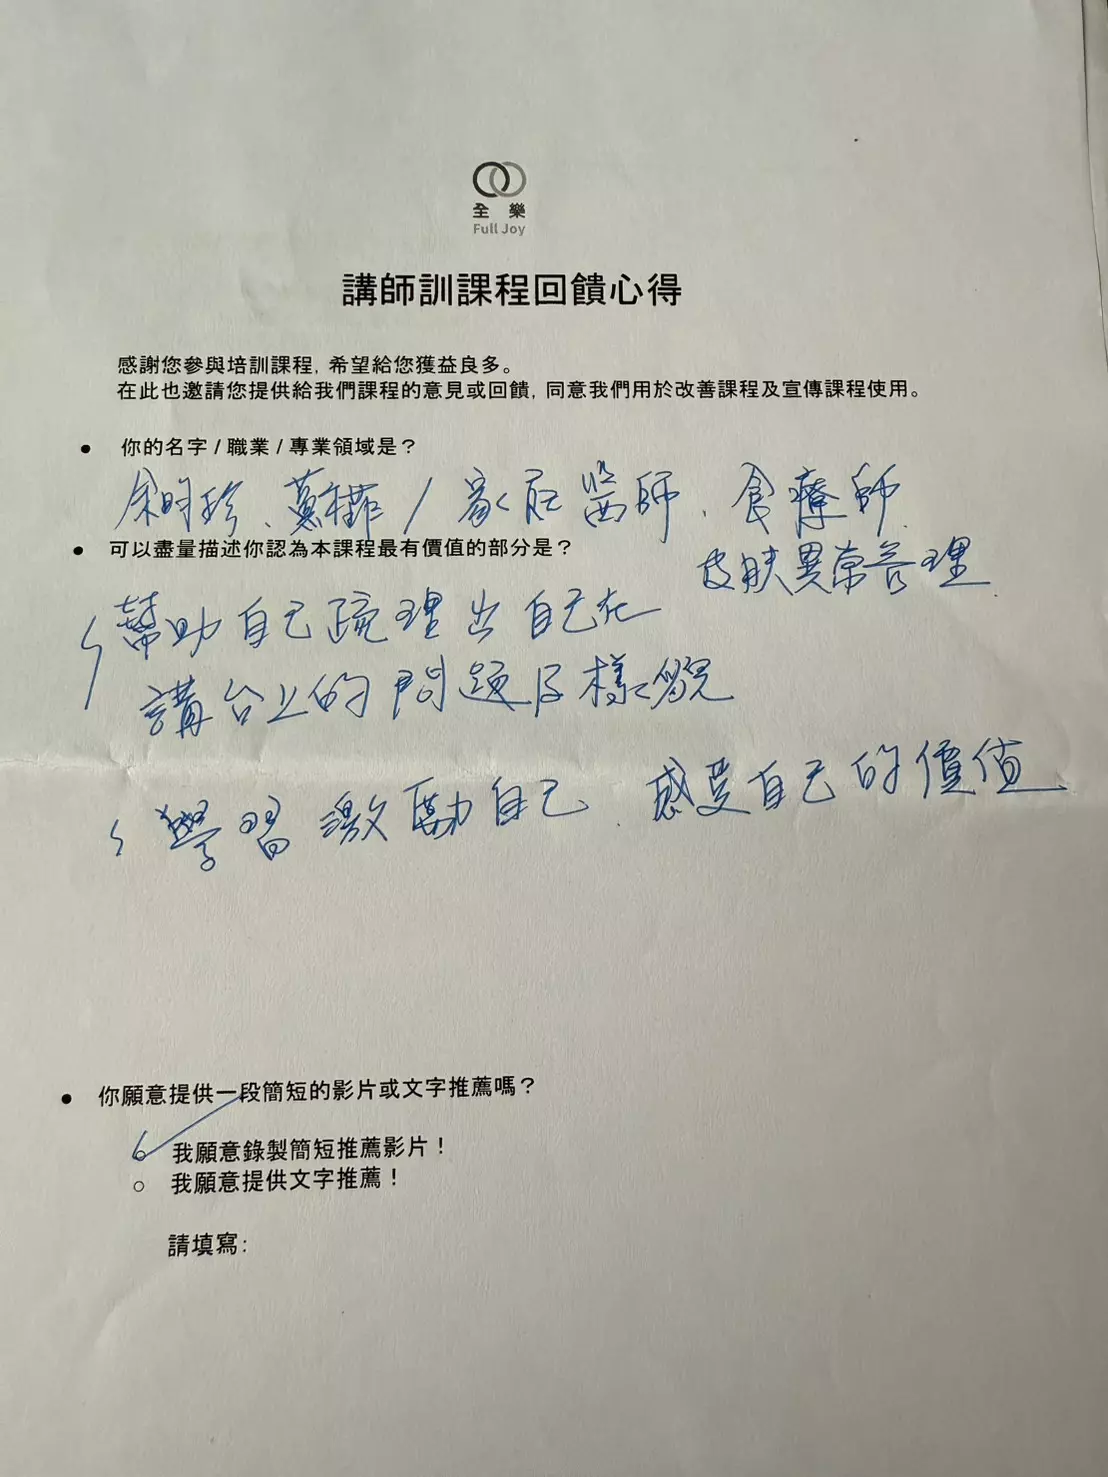 全樂
Full Joy
講師訓課程回饋心得
感謝您參與培訓課程, 希望給您獲益良多。
在此也邀請您提供給我們課程的意見或回饋, 同意我們用於改善課程及宣傳課程使用。
● 你的名字 / 職業 / 專業領域是？
余昀珍、 / 家庭醫師、食療師、
皮膚異常管理
● 可以盡量描述你認為本課程最有價值的部分是？
幫助自己疏理出自己在
講台上的問題及樣貌
學習激勵自己、感受自己的價值
● 你願意提供一段簡短的影片或文字推薦嗎？
○ 我願意錄製簡短推薦影片！
○ 我願意提供文字推薦！
請填寫: